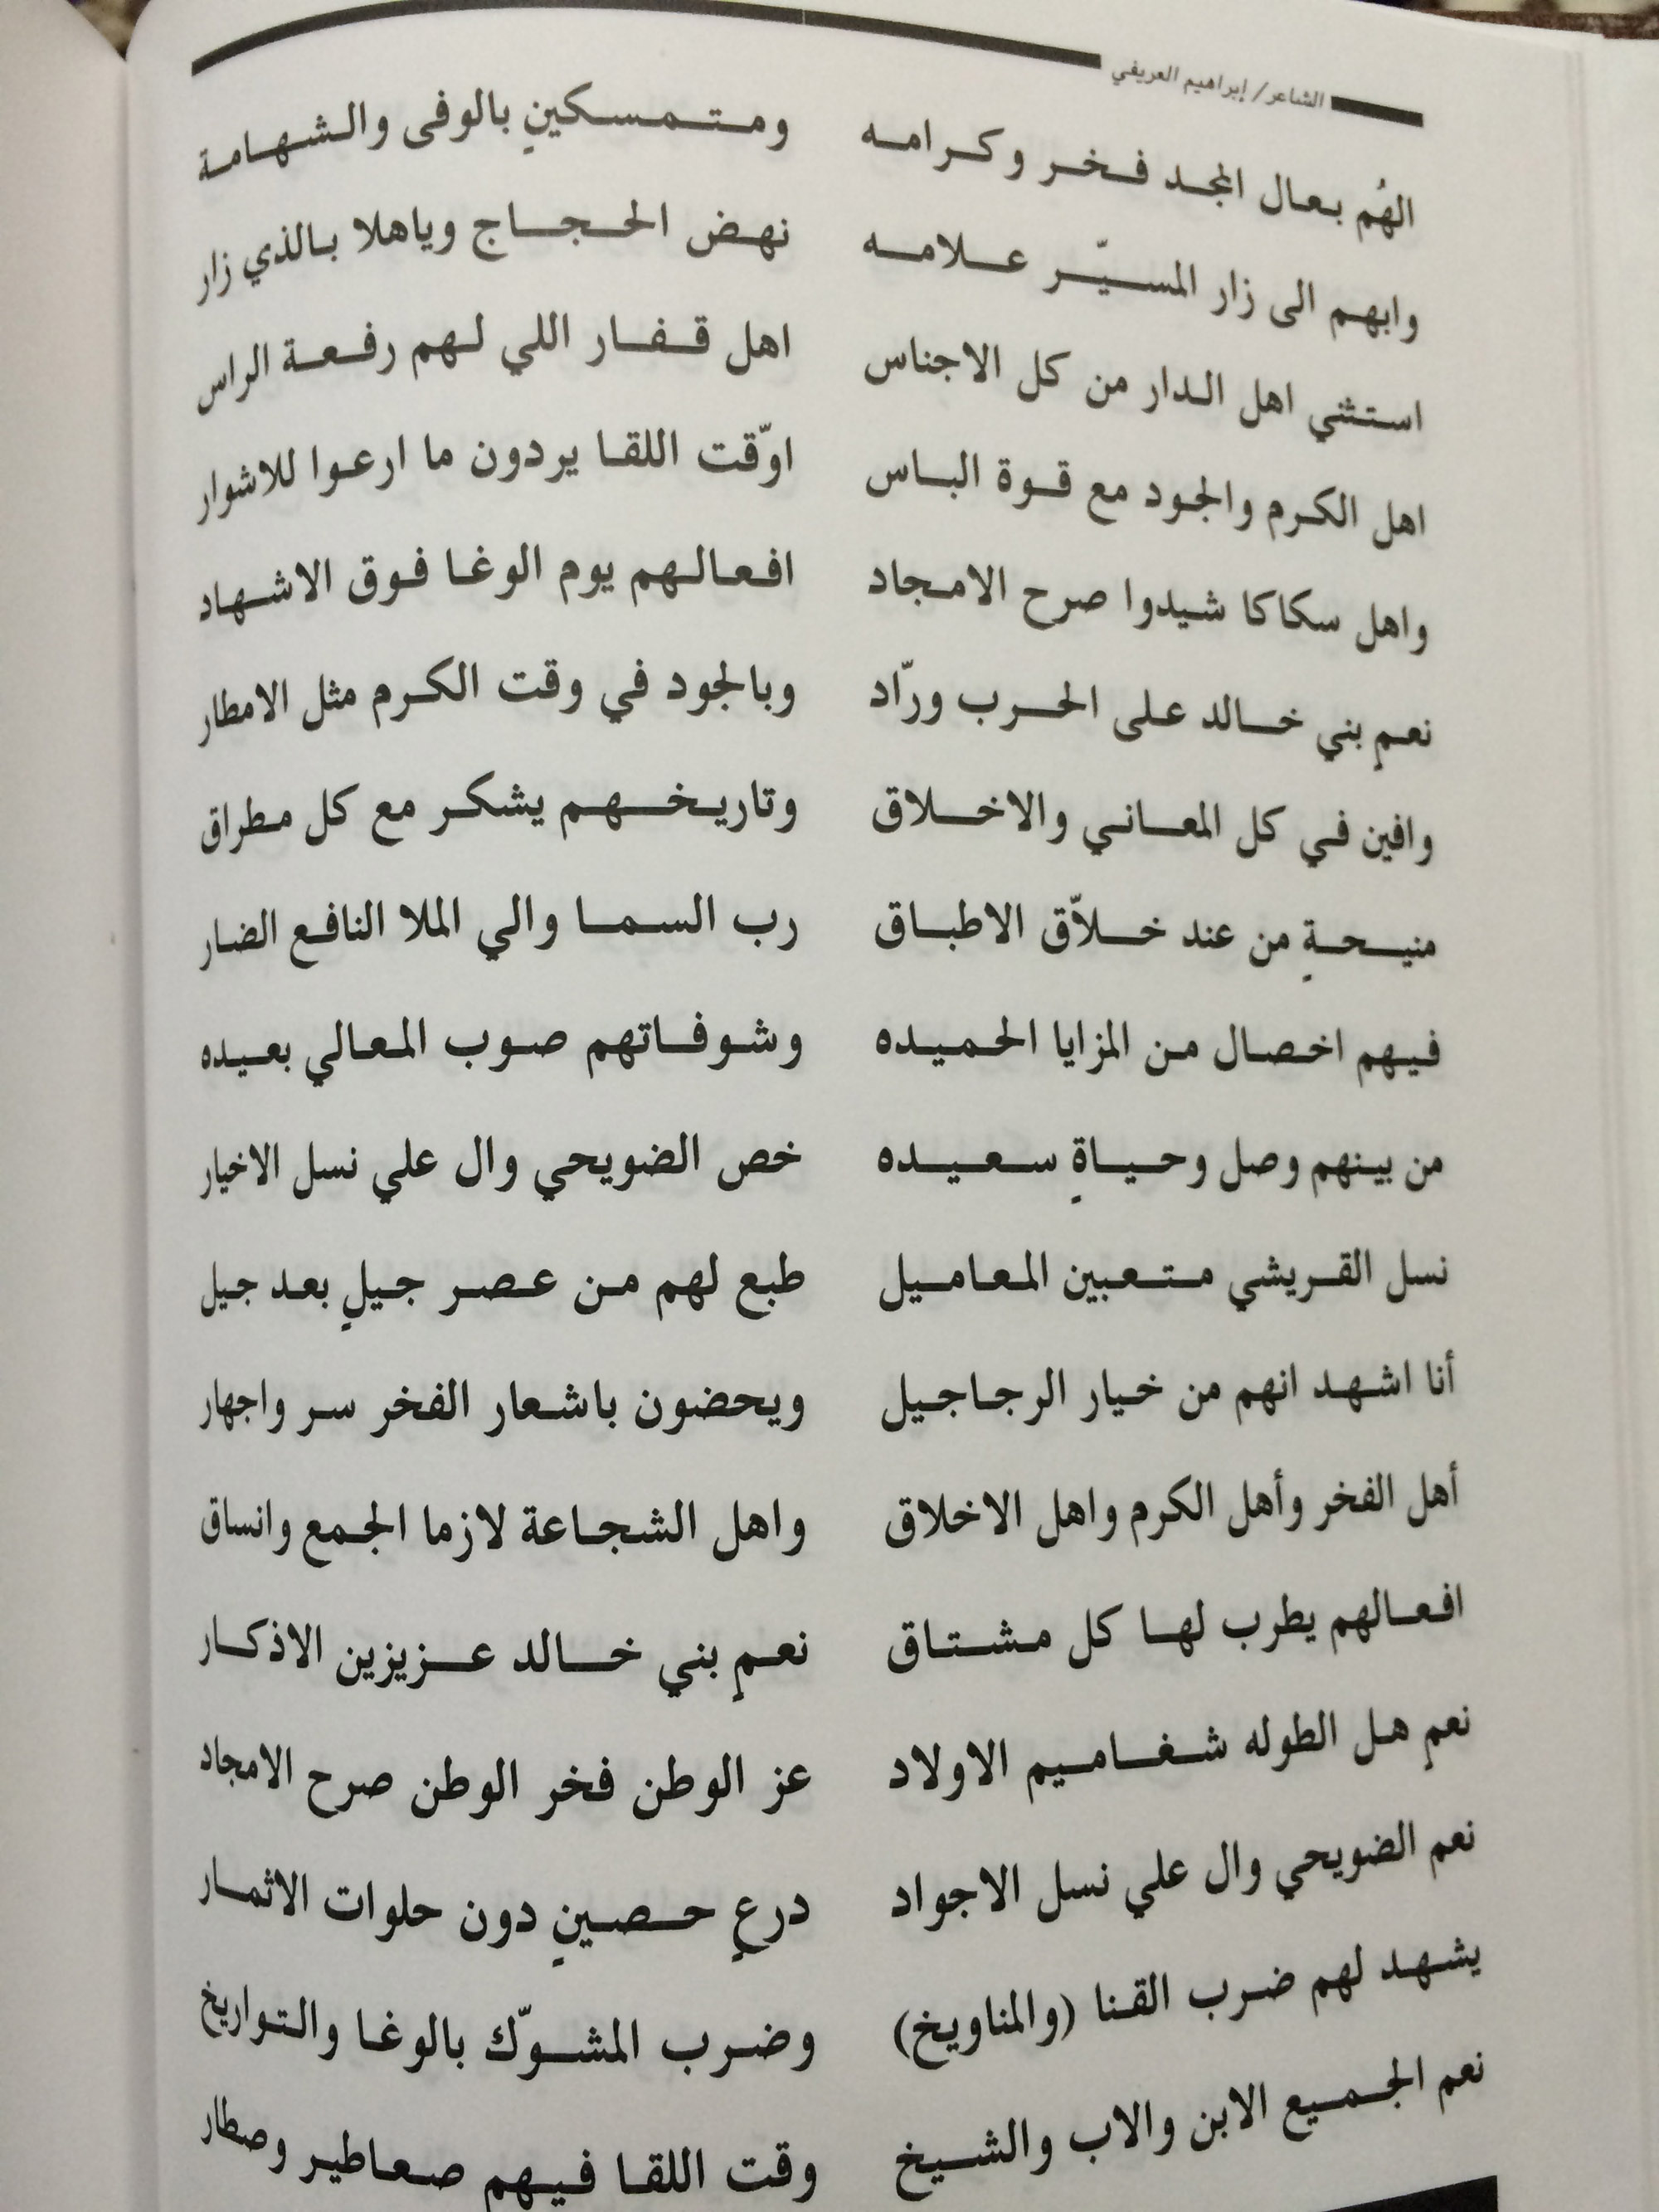 الشاعر/ إبراهيم العريفي
الهُم بعال المجد فخر وكرامه ومتمسكينٍ بالوفى والشهامة
وابهم الى زار المسيّر علامه نهض الحجاج وياهلا بالذي زار
استثني اهل الدار من كل الاجناس اهل قفار اللي لهم رفعة الراس
اهل الكرم والجود مع قوة الباس اوّقت اللقا يردون ما ارعوا للاشوار
واهل سكاكا شيدوا صرح الامجاد افعالهم يوم الوغا فوق الاشهاد
نعمٍ بني خالد على الحرب ورّاد وبالجود في وقت الكرم مثل الامطار
وافين في كل المعاني والاخلاق وتاريخهم يشكر مع كل مطراق
منيحةٍ من عند خلاّق الاطباق رب السما والي الملا النافع الضار
فيهم اخصال من المزايا الحميده وشوفاتهم صوب المعالي بعيده
من بينهم وصل وحياةٍ سعيده خص الضويحي وال علي نسل الاخيار
نسل القريشي متعبين المعاميل طبع لهم من عصر جيلٍ بعد جيل
أنا اشهد انهم من خيار الرجاجيل ويحضون باشعار الفخر سر واجهار
أهل الفخر وأهل الكرم واهل الاخلاق واهل الشجاعة لازما الجمع وانساق
افعالهم يطرب لها كل مشتاق نعمٍ بني خالد عزيزين الاذكار
نعمٍ هل الطوله شغاميم الاولاد عز الوطن فخر الوطن صرح الامجاد
نعم الضويحي وال علي نسل الاجواد درعٍ حصينٍ دون حلوات الاثمار
يشهد لهم ضرب القنا (والمناويخ) وضرب المشوّك بالوغا والتواريخ
نعم الجميع الابن والاب والشيخ وقت اللقا فيهم صعاطير وصطار